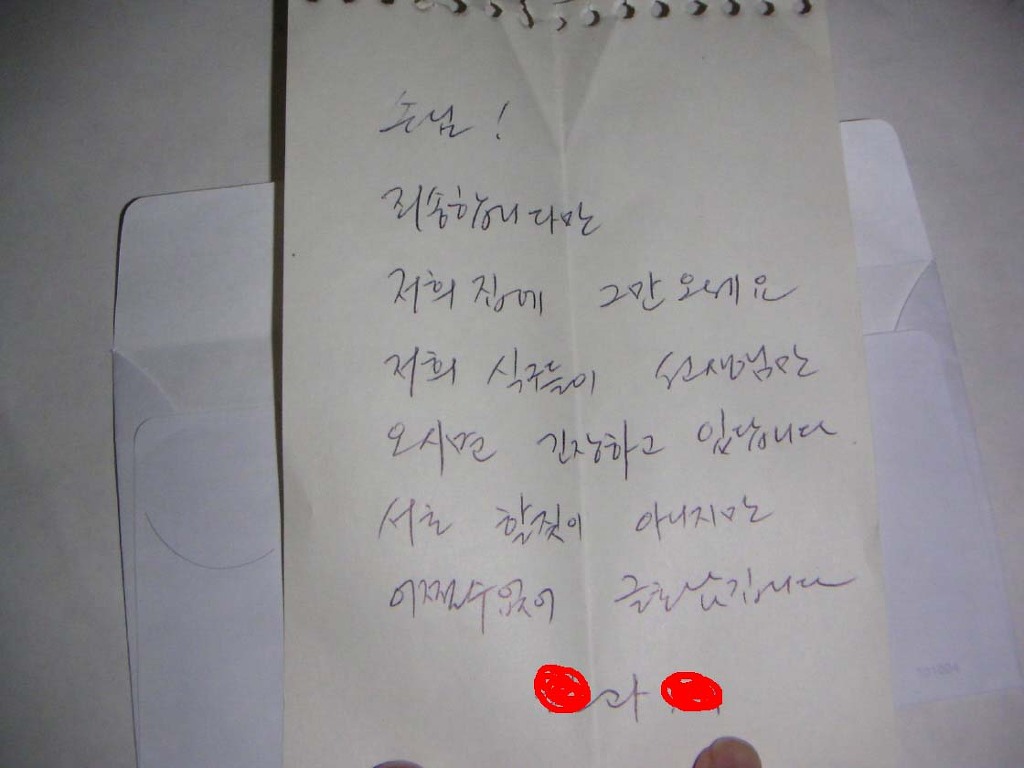 손님!
죄송합니다만
저희 집에 그만 오세요
저희 식구들이 선생님만
오시면 긴장하고 입답니다
서로 할짓이 아니지만
어쩔수없이 글로 남깁니다
과